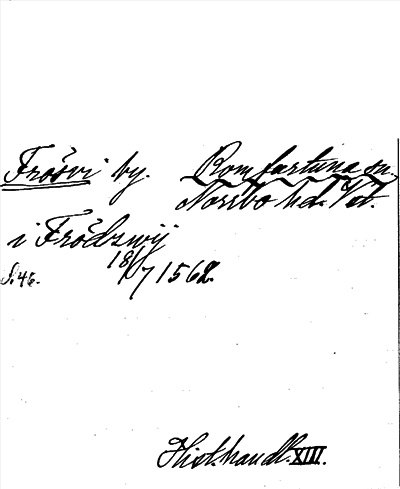 Frösvi by. Romfartuna sn.
Norrbo hd. Vstm.
i Frödzwij
S. 46. 18/7 1562.
Hist. handl. XIII.